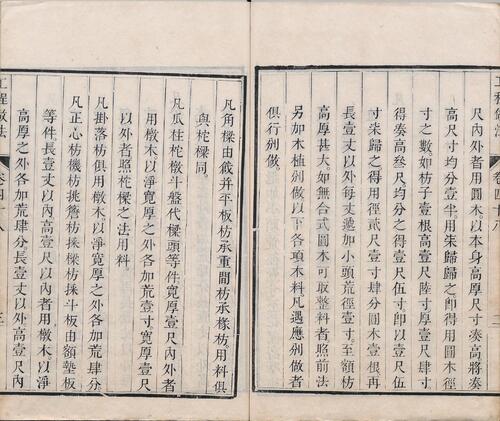 工程做法 卷四十八 二
尺內外者用圓木以本身高厚尺寸湊高將湊
高尺寸均分壹半用柒歸歸之即得用圓木徑
寸之數如枋子壹根高壹尺陸寸厚壹尺肆寸
得湊高叁尺均分之得壹尺伍寸即以壹尺伍
寸柒歸之得用徑貳尺壹寸肆分圓木壹根再
長壹丈以外每丈遞加小頭荒徑壹寸至額枋
高厚甚大如無合式圓木可取整料者照前法
另加木植做以下各項木料凡遇應做者
俱行做
凡角樑由戧并平板枋承重間枋承椽枋用料俱
與柁樑同
凡瓜柱柁橔斗盤代樑頭等件寬厚壹尺內外者
用橔木以淨寬厚之外各加荒壹寸寬厚壹尺
以外者照柁樑之法用料
凡掛落枋俱用橔木以淨寬厚之外各加荒肆分
凡正心枋機枋挑簷枋採樑枋採斗板由額墊板
等件長壹丈以內高壹尺以內者用橔木以淨
高厚之外各加荒肆分長壹丈以外高壹尺內
工程做法 卷四十八 三